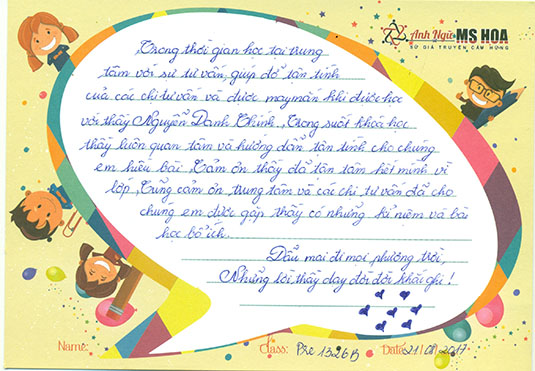 Anh Ngữ MS HOA
SỨ GIẢ TRUYỀN CẢM HỨNG
Trong thời gian học tại trung
tâm với sự tư vấn, giúp đỡ tận tình
của các chị tư vấn và được may mắn khi được học
với thầy Nguyễn Danh Chính. Trong suốt khoá học
thầy luôn quan tâm và hướng dẫn tận tình cho chúng
em hiểu bài. Cảm ơn thầy đã tận tâm hết mình vì
lớp, cũng cảm ơn trung tâm và các chị tư vấn đã cho
chúng em được gặp thầy có những kỉ niệm và bài
học bổ ích.
Dẫu mai đi mọi phương trời,
Những lời thầy dạy đời đời khắc ghi!
Name:
Class: Pre 1326B
Date: 21/08/2017